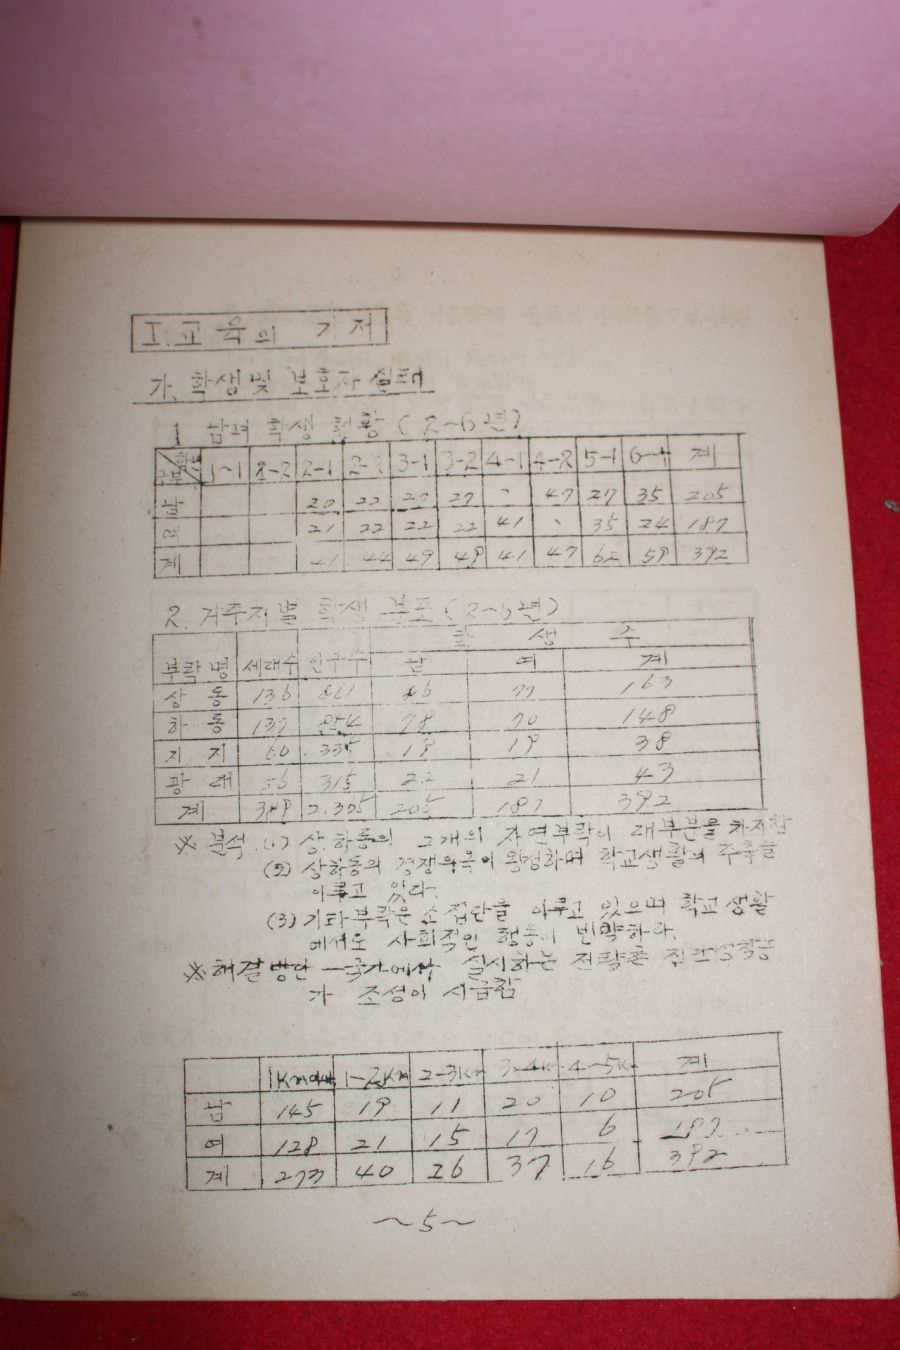 I. 교육의 기저
가. 학생 및 보호자 실태
1 남녀 학생 현황 (2~6년)
1-1 2-2 2-1 3-1 3-2 4-1 4-2 5-1 6-1 계
남 20 22 27 27 - 47 27 35 205
여 21 22 22 22 41 - 35 24 187
계 41 44 49 49 41 47 62 59 392
2. 거주지별 학생 분포 (2~6년)
학 생 수
부락명 세대수 인구수 남 여 계
상 동 136 86 77 163
하 동 137 78 70 148
지 지 60 335 19 19 38
광 대 56 315 22 21 43
계 389 2.305 205 187 392
※ 분석 (1) 상.하동의 2개의 자연부락이 대부분을 차지함
(2) 상하동의 경쟁의욕이 왕성하며 학교생활의 주축을
이루고 있다.
(3) 기타부락은 소집단을 이루고 있으며 학교생활
에서도 사회적인 행동이 빈약하다.
※ 해결방안 실시하는 전락촌
가 조성이 시급함
1Km 1-2Km 2-3Km 3-4Km 4-5Km 계
남 145 19 11 20 10 205
여 128 21 15 17 6 187
계 273 40 26 37 16 392
~5~